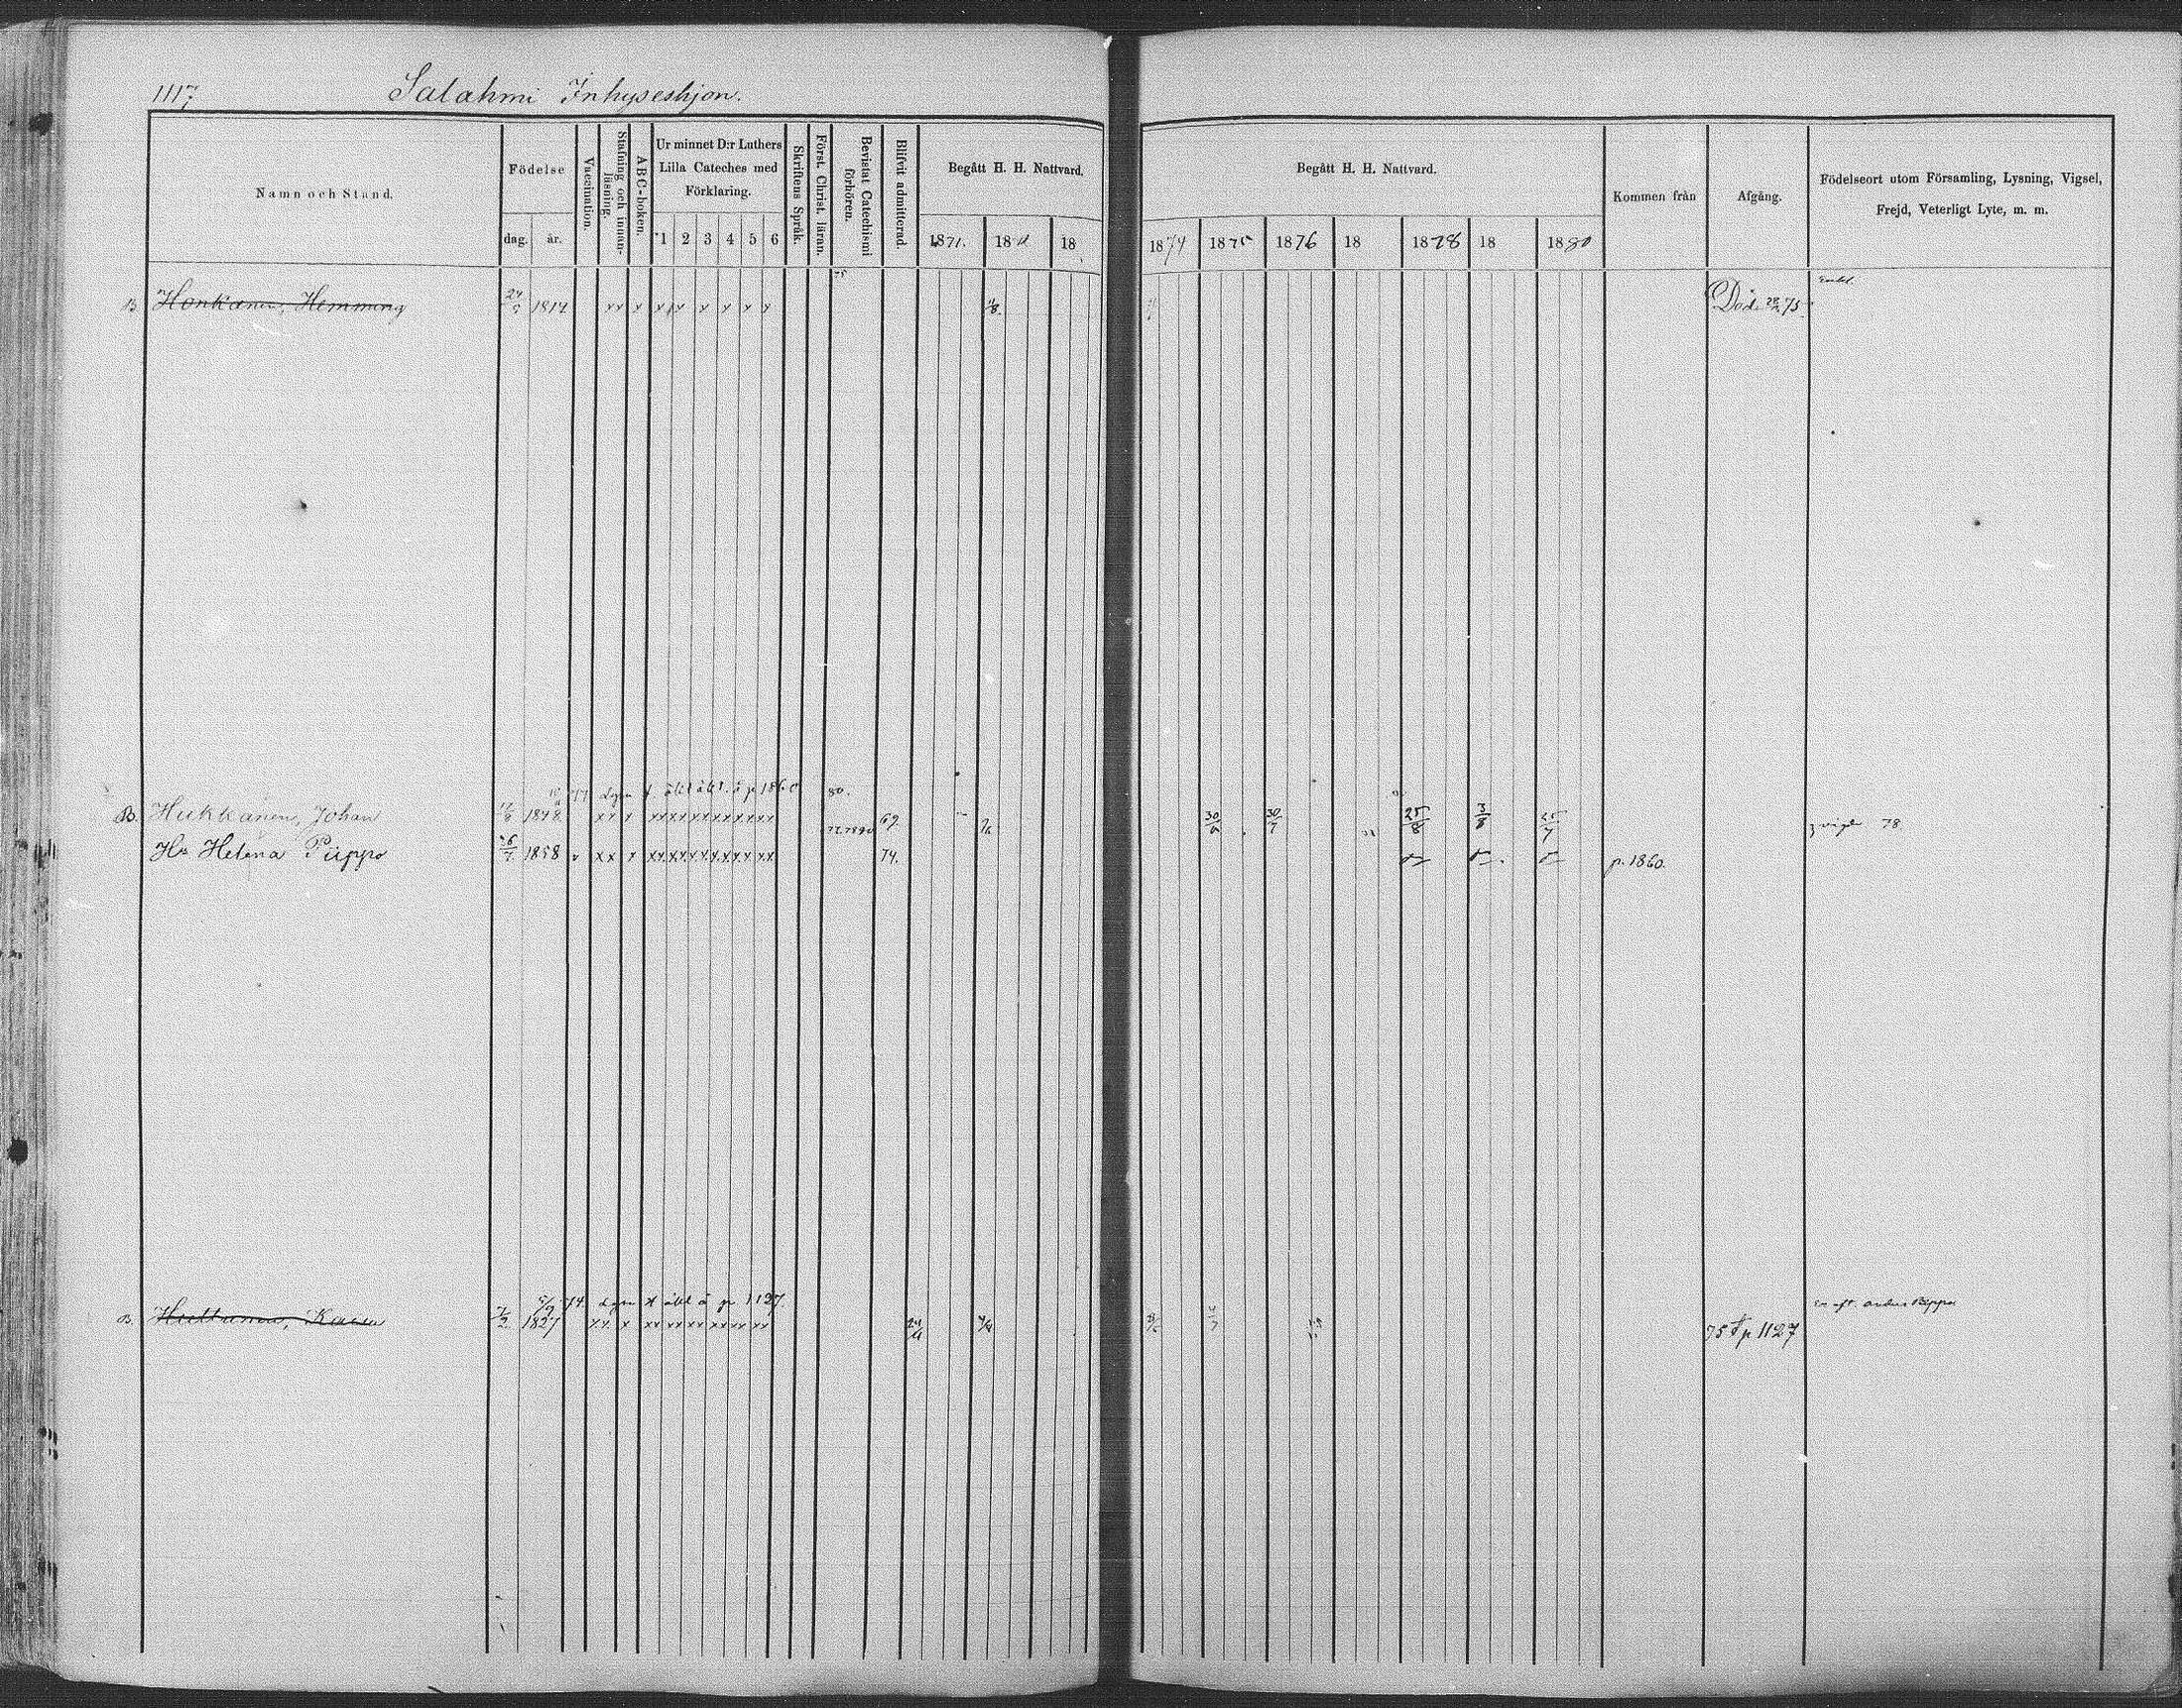 1117
Salahmi Inhyseshjon.
Namn och Stand.
Födelse
dag. år.
Vaccination.
Stafning och innanläsning.
ABC-boken.
Ur minnet D:r Luthers Lilla Cateches med Förklaring.
1 2 3 4 5 6
Skriftens Språk.
Först. Christ. läran.
Bevistat Catechismi förhören.
Blifvit admitterad.
Begått H. H. Nattvard.
1871. 18 18
Begått H. H. Nattvard.
1874 1875 1876 18 1878 18 1880
Kommen från
Afgång.
Födelseort utom Församling, Lysning, Vigsel, Frejd, Veterligt Lyte, m. m.
B. Honkanen, Hemming 1817 x x x x x x x x x Död 75
80.
B. Hukkanen, Johan 1848 x x x xx xx xx xx xx xx 69. 30/6 30/7 25/8 3/8 25/7 78
Hu Helena Piippo 26/7 1858 v x x x xx xx xx xx xx xx 74. p. 1860.
74. å p 1127.
B. Huttunen, Kaisa 1827 x x x xx xx xx xx xx xx 75 p 1127